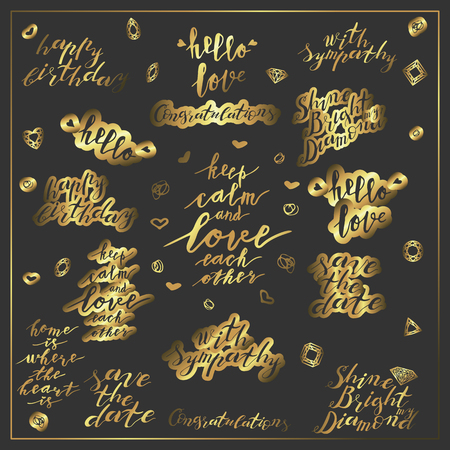 happy
birthday
hello
love
with
sympathy
Congratulations
Shine
Bright
my
Diamond
hello
happy
birthday
keep
calm
and
love
each
other
hello
love
keep
calm
and
love
each
other
save
the
date
home
is
where
the
heart
is
with
sympathy
save
the
date
Congratulations
Shine
Bright
my
Diamond